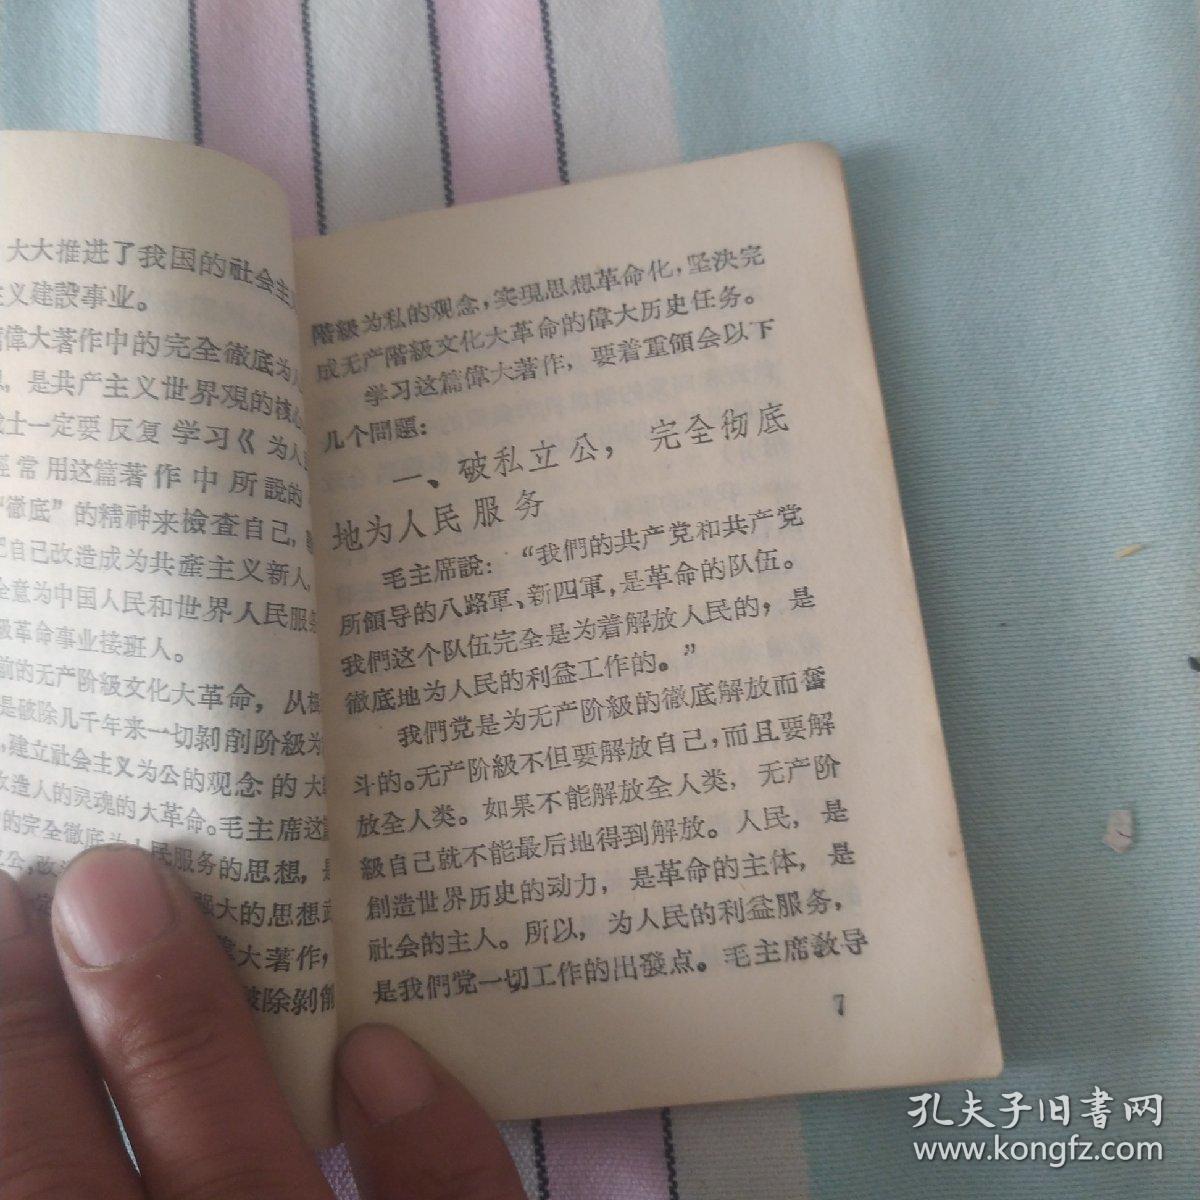 大大推进了我国的社会主
主义建設事业。
偉大著作中的完全徹底为人
，是共产主义世界观的核心
士一定要反复学习《为人
經常用这篇著作中所說的
“徹底”的精神来檢查自己，
把自己改造成为共產主义新人，
全意为中国人民和世界人民服务
級革命事业接班人。
前的无产阶級文化大革命，从
是破除几千年来一切剝削阶級为
，建立社会主义为公的观念的大
改造人的灵魂的大革命。毛主席这
的完全徹底为人民服务的思想，是
公，改
强大的思想武
偉大著作，
破除剝削
階級为私的观念，实現思想革命化，坚决完
成无产階級文化大革命的偉大历史任务。
学习这篇偉大著作，要着重領会以下
几个問題：
一、破私立公，完全彻底
地为人民服务
毛主席說：“我們的共产党和共产党
所領导的八路軍、新四軍，是革命的队伍。
我們这个队伍完全是为着解放人民的，是
徹底地为人民的利益工作的。”
我們党是为无产阶級的徹底解放而奮
斗的。无产阶級不但要解放自己，而且要解
放全人类。如果不能解放全人类，无产阶
級自己就不能最后地得到解放。人民，是
創造世界历史的动力，是革命的主体，是
社会的主人。所以，为人民的利益服务，
是我們党一切工作的出發点。毛主席教导
7
孔夫子旧書网
www.kongfz.com